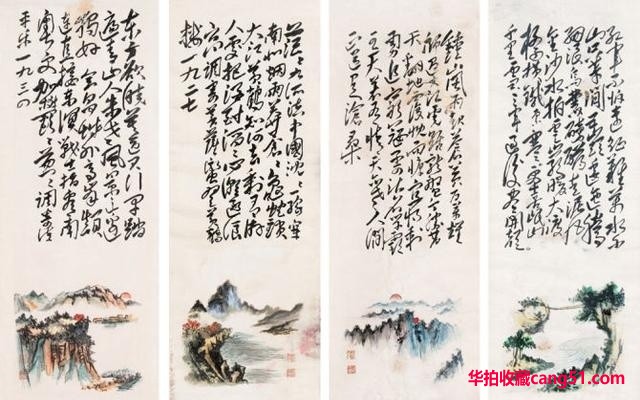 红军不怕远征难万水千
山只等闲五岭逶迤腾
细浪乌蒙磅礴走泥丸
金沙水拍云崖暖大渡
桥横铁索寒更喜岷山
千里雪三军过后尽开颜
钟山风雨起苍黄百万雄
师过大江虎踞龙盘今胜昔
天翻地覆慨而慷宜将剩
勇追穷寇不可沽名学霸
王天若有情天亦老人间
正道是沧桑
茫茫九派流中国沉沉一线穿
南北烟雨莽苍苍龟蛇锁
大江黄鹤知何去剩有游
人处把酒酹滔滔心潮逐浪
高调寄菩萨蛮黄鹤
楼一九二七
东方欲晓莫道君行早踏
遍青山人未老风景这边
独好会昌城外高峰颠
连直接东溟战士指看南
粤更加郁郁葱葱调寄清
平乐一九三四
华拍收藏cang51.com